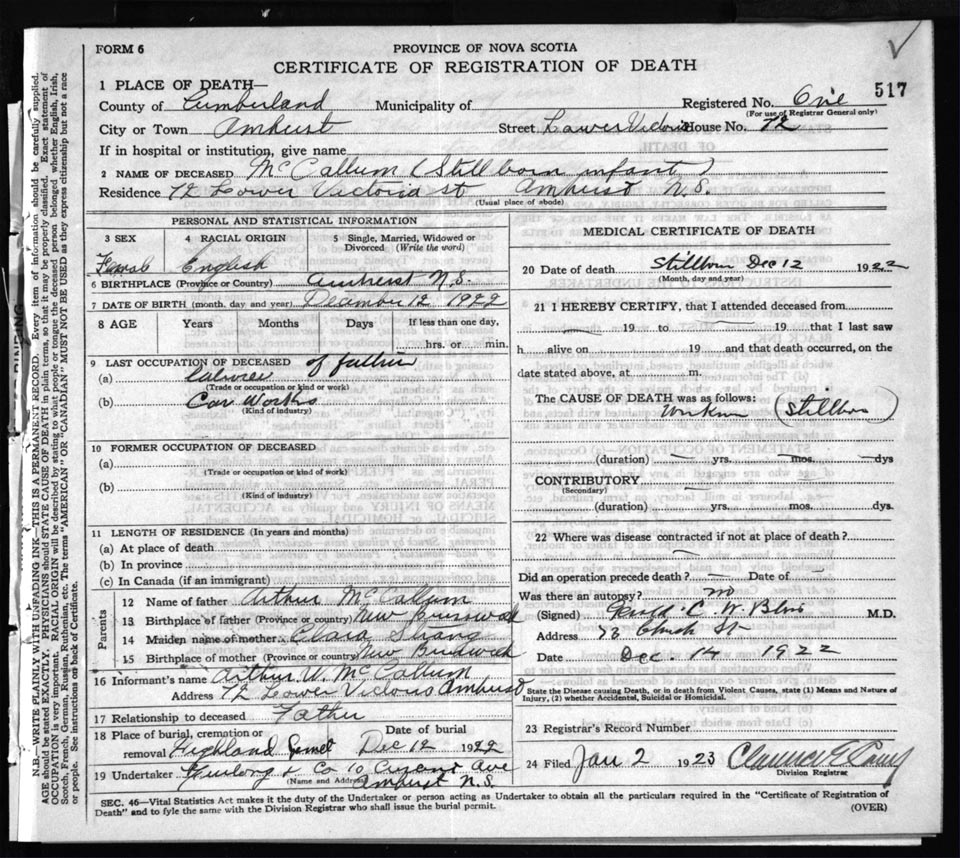 FORM 6
PROVINCE OF NOVA SCOTIA
CERTIFICATE OF REGISTRATION OF DEATH
517
1 PLACE OF DEATH—
County of Cumberland Municipality of Registered No. One
(For use of Registrar General only)
City or Town Amherst Street Lower Victoria House No. 72
If in hospital or institution, give name
2 NAME OF DECEASED McCallum (Stillborn infant)
Residence 72 Lower Victoria St Amherst N.S.
(Usual place of abode)
PERSONAL AND STATISTICAL INFORMATION
3 SEX 4 RACIAL ORIGIN 5 Single, Married, Widowed or Divorced (Write the word)
Female English
6 BIRTHPLACE (Province or Country) Amherst N.S.
7 DATE OF BIRTH (month, day and year) December 12 1922
8 AGE Years Months Days If less than one day,
hrs. or min.
9 LAST OCCUPATION OF DECEASED of father
(a) Labourer
(Trade or occupation or kind or work)
(b) Car Works
(Kind of industry)
10 FORMER OCCUPATION OF DECEASED
(a)
(Trade or occupation or kind of work)
(b)
(Kind of industry)
11 LENGTH OF RESIDENCE (In years and months)
(a) At place of death
(b) In province
(c) In Canada (if an immigrant)
Parents
12 Name of father Arthur McCallum
13 Birthplace of father (Province or country) New Brunswick
14 Maiden name of mother Clara
15 Birthplace of mother (Province or country) New Brunswick
16 Informant's name Arthur W. McCallum
Address 72 Lower Victoria Amherst
17 Relationship to deceased Father
18 Place of burial, cremation or removal Highland Date of burial Dec 12 1922
19 Undertaker Furlong & Co 10 Ave
(Name and Address) Amherst N.S.
MEDICAL CERTIFICATE OF DEATH
20 Date of death Stillborn Dec 12 1922
(Month, day and year)
21 I HEREBY CERTIFY, that I attended deceased from
19 to 19 that I last saw
h alive on 19 and that death occurred, on the
date stated above, at m.
The CAUSE OF DEATH was as follows:
unknown (Stillborn)
(duration) yrs. mos. dys
CONTRIBUTORY
(Secondary)
(duration) yrs. mos. dys.
22 Where was disease contracted if not at place of death?
Did an operation precede death? — Date of
Was there an autopsy? no
(Signed) C. W. M.D.
Address Church St
Date Dec. 14 1922
State the Disease causing Death, or in death from Violent Causes, state (1) Means and Nature of
Injury, (2) whether Accidental, Suicidal or Homicidal.
23 Registrar's Record Number
24 Filed Jan 2 1923 Clarence
Division Registrar
SEC. 46—Vital Statistics Act makes it the duty of the Undertaker or person acting as Undertaker to obtain all the particulars required in the "Certificate of Registration of
Death" and to fyle the same with the Division Registrar who shall issue the burial permit. (OVER)
N.B.—WRITE PLAINLY WITH UNFADING INK—THIS IS A PERMANENT RECORD. Every item of information should be carefully supplied.
AGE should be stated EXACTLY. PHYSICIANS should STATE CAUSE OF DEATH in plain terms, so that it may be properly classified. Exact statement of
OCCUPATION is very important. RACIAL ORIGIN will be described by stating to what people or tongue the deceased person belonged, whether English, Irish,
Scotch, French, German, Russian, Ruthenian, etc. The terms "AMERICAN" OR "CANADIAN" MUST NOT BE USED as they express citizenship but not a race
or people. See instructions on back of Certificate.